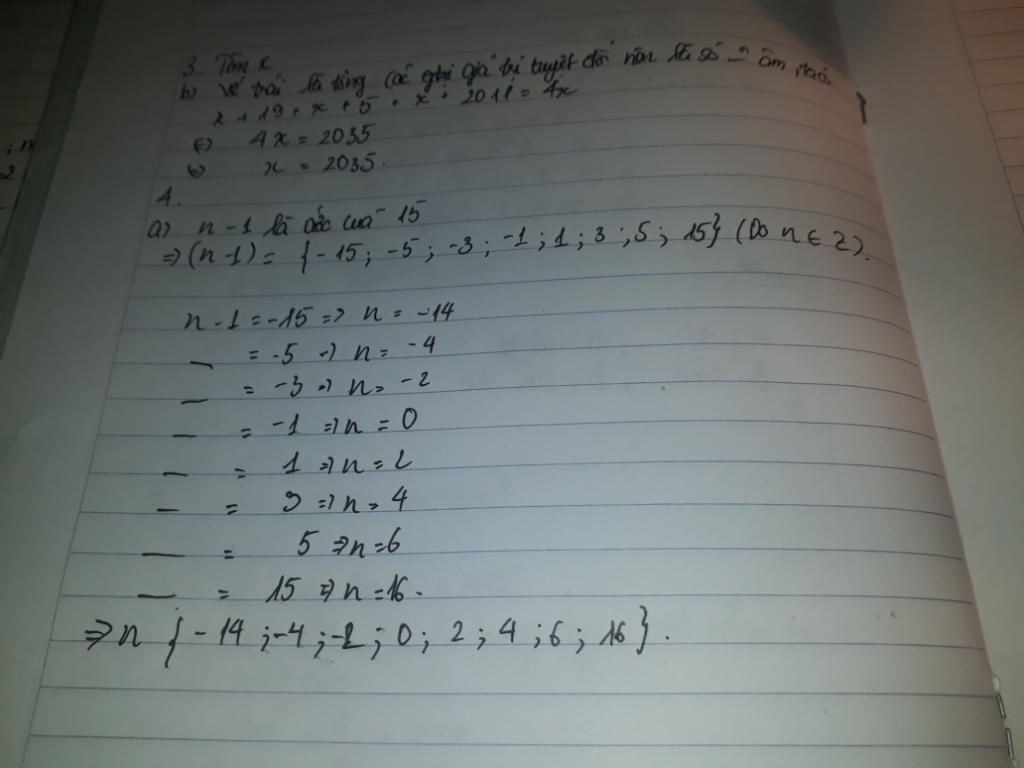 3. Tìm x
b) Vế trái là tổng các giá trị tuyệt đối nên là số - âm,
x + 19 + x + 5 + x + 2011 = 4x
(=) 4x = 2035
x = 2035.
4.
a) n - 1 là ước của 15
=> (n-1) = {-15; -5; -3; -1; 1; 3; 5; 15} (Do n ∈ Z).
n - 1 = -15 => n = -14
— = -5 -) n = -4
— = -3 => n = -2
— = -1 => n = 0
— = 1 => n = 2
— = 3 => n = 4
— = 5 => n = 6
— = 15 => n = 16.
=> n {-14; -4; -2; 0; 2; 4; 6; 16}.